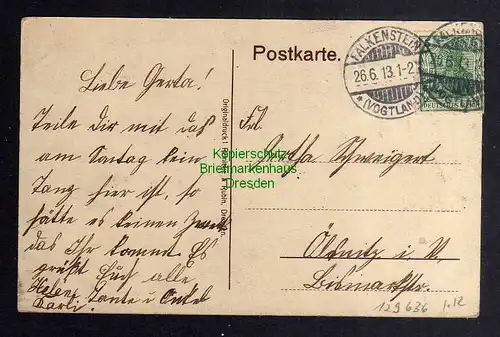 Postkarte.
FALKENSTEIN
26.6.13.1-2
*(VOGTLAND)
DEUTSCHES REICH
Liebe Gerta!
Teile Dir mit daß
am Sontag kein
Tanz hier ist, so
hätte es keinen Zweck
das Ihr kommt. Es
grüßt Euch alle
Helene Tante u Onkel
Karli.
Originaldruck
Frl.
Schweigert
Ölsnitz i. V.
Bismarkstr.
Kopierschutz
Briefmarkenhaus
Dresden
129636 1.12